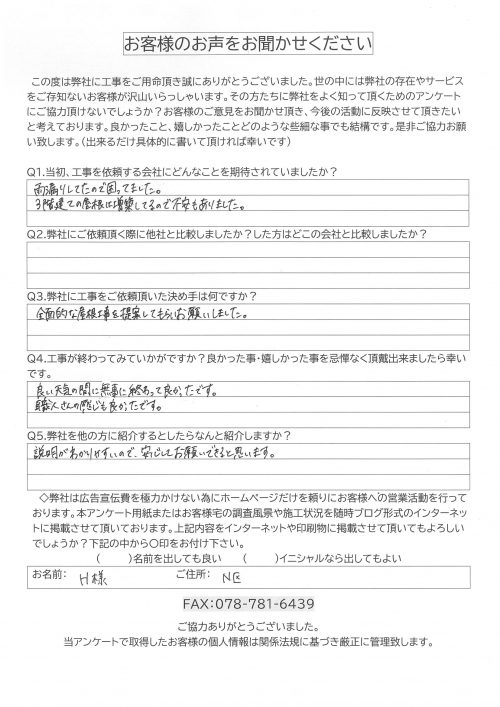 お客様のお声をお聞かせください
この度は弊社に工事をご用命頂き誠にありがとうございました。世の中には弊社の存在やサービス
をご存知ないお客様が沢山いらっしゃいます。その方たちに弊社をよく知って頂くためのアンケート
にご協力頂けないでしょうか?お客様のご意見をお聞かせ頂き、今後の活動に反映させて頂きたい
と考えております。良かったこと、嬉しかったことどのような些細な事でも結構です。是非ご協力お願
い致します。（出来るだけ具体的に書いて頂ければ幸いです）
Q1.当初、工事を依頼する会社にどんなことを期待されていましたか?
雨漏りしてたので困ってました。
3階建ての屋根は増築してるので不安もありました。
Q2.弊社にご依頼頂く際に他社と比較しましたか?した方はどこの会社と比較しましたか?
Q3.弊社に工事をご依頼頂いた決め手は何ですか?
全面的な屋根工事を提案してもらいお願いしました。
Q4.工事が終わってみていかがですか?良かった事・嬉しかった事を忌憚なく頂戴出来ましたら幸い
です。
良い天気の間に無事に終わって良かったです。
職人さんの感じも良かったです。
Q5.弊社を他の方に紹介するとしたらなんと紹介しますか?
説明がわかりやすいので、安心してお願いできると思います。
◇弊社は広告宣伝費を極力かけない為にホームページだけを頼りにお客様への営業活動を行って
おります。本アンケート用紙またはお客様宅の調査風景や施工状況を随時ブログ形式のインターネッ
トに掲載させて頂いております。上記内容をインターネットや印刷物に掲載させて頂いてもよろしい
でしょうか?下記の中から○印をお付け下さい。
（　　）名前を出しても良い　（　　）イニシャルなら出してもよい
お名前： H様 ご住所： N区
FAX:078-781-6439
ご協力ありがとうございました。
当アンケートで取得したお客様の個人情報は関係法規に基づき厳正に管理致します。